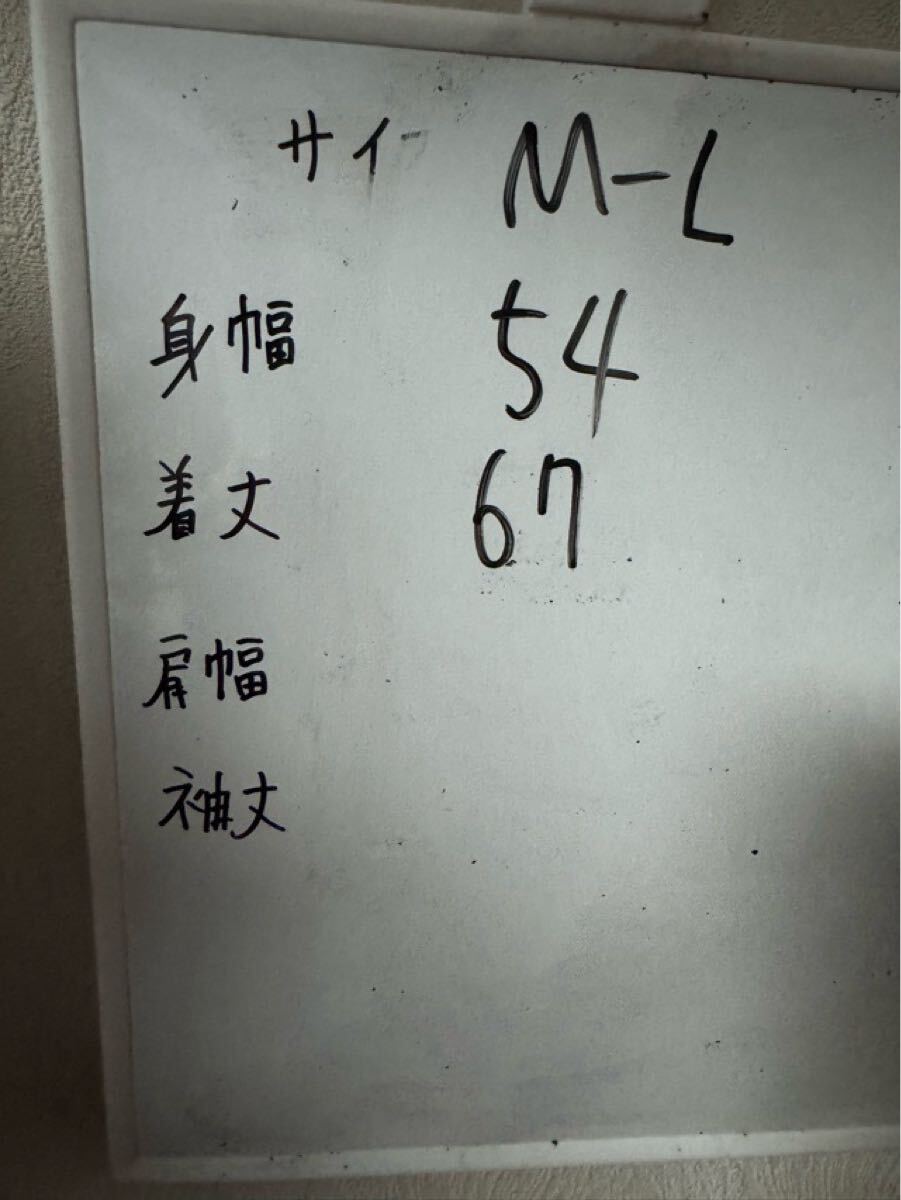 サイ M-L
身幅 54
着丈 67
肩幅
袖丈